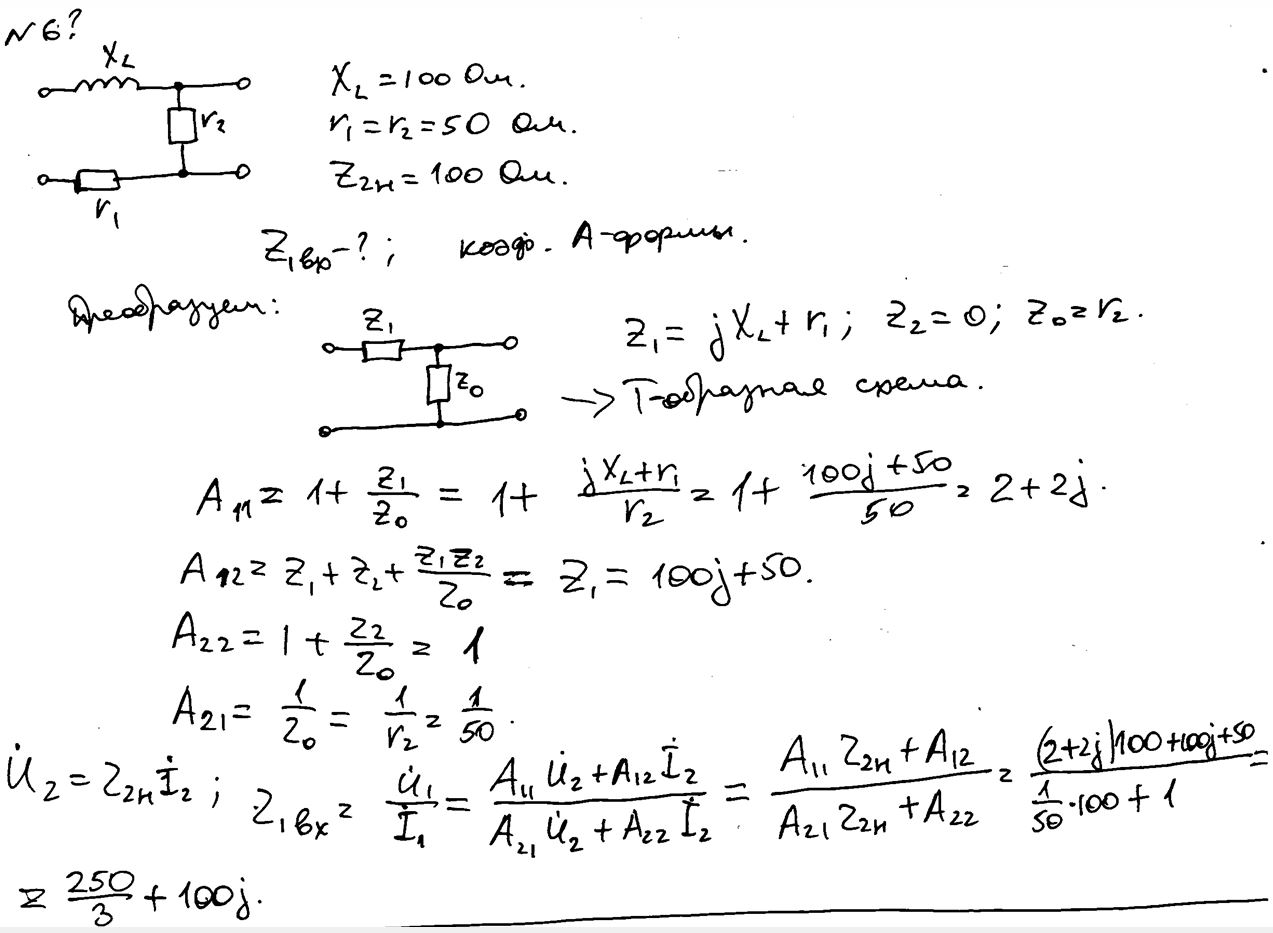 N6?
X_L
r₂
r₁
X_L = 100 Ом.
r₁ = r₂ = 50 Ом.
Z₂н = 100 Ом.
Z₁вх - ?; коэф. А-формы.
Преобразуем:
Z₁
Z₀
Z₁ = jX_L + r₁; Z₂ = 0; Z₀ = r₂.
→ Т-образная схема.
A₁₁ = 1 + Z₁/Z₀ = 1 + (jX_L + r₁)/r₂ = 1 + (100j + 50)/50 = 2 + 2j.
A₁₂ = Z₁ + Z₂ + Z₁Z₂/Z₀ = Z₁ = 100j + 50.
A₂₂ = 1 + Z₂/Z₀ = 1
A₂₁ = 1/Z₀ = 1/r₂ = 1/50.
U̇₂ = Z₂н İ₂; Z₁вх = U̇₁/İ₁ = (A₁₁ U̇₂ + A₁₂ İ₂)/(A₂₁ U̇₂ + A₂₂ İ₂) = (A₁₁ Z₂н + A₁₂)/(A₂₁ Z₂н + A₂₂) = ((2+2j)100 + 100j + 50)/(1/50 · 100 + 1) =
= 250/3 + 100j.